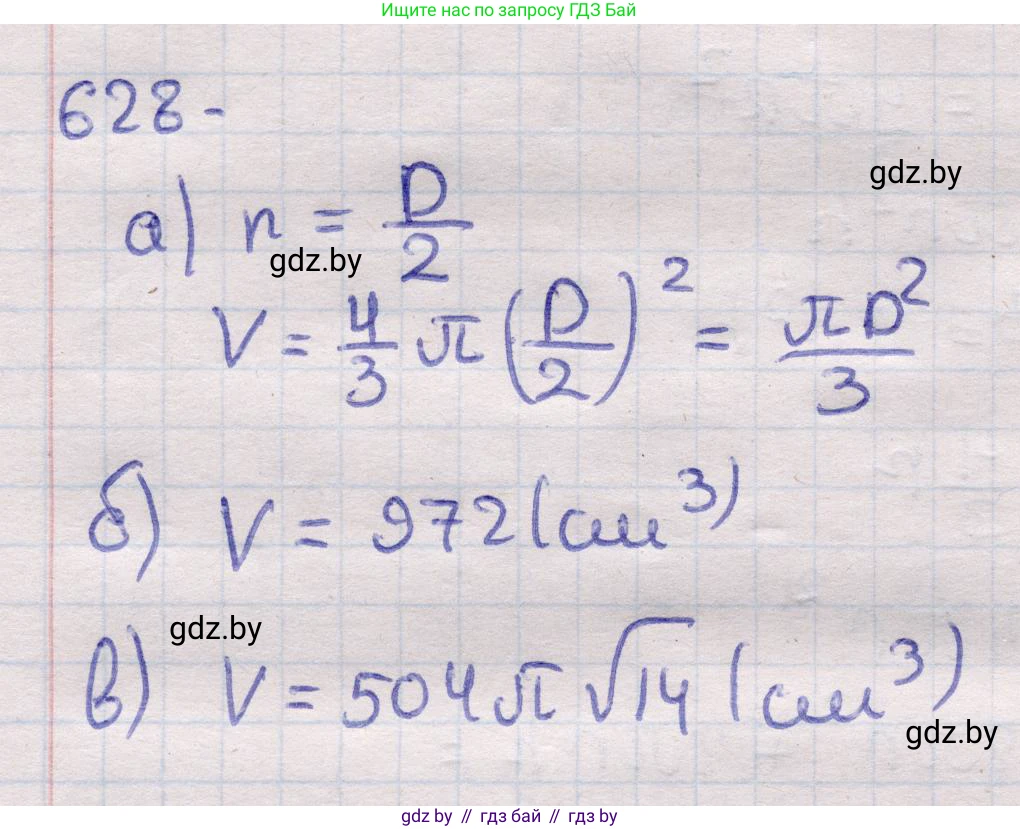 Ищите нас по запросу ГДЗ Бай
628-
gdz.by
а) r = D/2
gdz.by
V = 4/3 π (D/2)² = πD²/3
б) V = 972 (см³)
gdz.by
в) V = 504π√14 (см³)
gdz.by
gdz by // гдз бай // gdz by